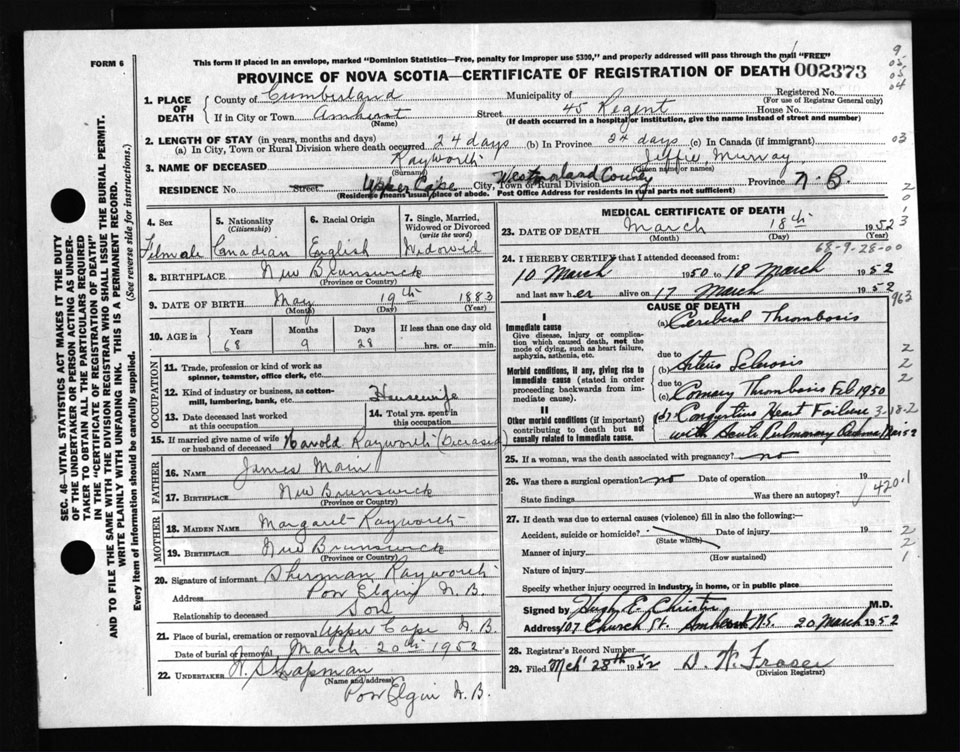 FORM 6
This form if placed in an envelope, marked "Dominion Statistics—Free, penalty for improper use $300," and properly addressed will pass through the mail "FREE"
PROVINCE OF NOVA SCOTIA—CERTIFICATE OF REGISTRATION OF DEATH 002373
1. PLACE OF DEATH
County of Cumberland Municipality of Registered No.
(For use of Registrar General only)
If in City or Town Amherst Street 45 Regent House No.
(Name) (If death occurred in a hospital or institution, give the name instead of street and number)
2. LENGTH OF STAY (in years, months and days)
(a) In City, Town or Rural Division where death occurred 24 days (b) In Province 24 days (c) In Canada (if immigrant)
3. NAME OF DECEASED Rayworth Murray
(Surname) (Given name or names)
RESIDENCE No. Street Upper Cape City, Town or Rural Division Westmorland County Province N.B.
(Residence means usual place of abode. Post Office Address for rural parts not sufficient)
4. Sex
Female
5. Nationality
(Citizenship)
Canadian
6. Racial Origin
English
7. Single, Married, Widowed or Divorced
(write the word)
Widowed
8. BIRTHPLACE New Brunswick
(Province or Country)
9. DATE OF BIRTH May 19th 1883
(Month) (Day) (Year)
10. AGE in Years Months Days If less than one day old
68 9 28 hrs. or min.
OCCUPATION
11. Trade, profession or kind of work as
spinner, teamster, office clerk, etc.
12. Kind of industry or business, as cotton-
mill, lumbering, bank, etc. Housewife
13. Date deceased last worked
at this occupation
14. Total yrs. spent in
this occupation
15. If married give name of wife
or husband of deceased Harold Rayworth (Deceased)
FATHER
16. NAME James Main
17. BIRTHPLACE New Brunswick
(Province or Country)
MOTHER
18. MAIDEN NAME Margaret Rayworth
19. BIRTHPLACE New Brunswick
(Province or Country)
20. Signature of informant Sherman Rayworth
Address Port Elgin N.B.
Relationship to deceased Son
21. Place of burial, cremation or removal Upper Cape N.B.
Date of burial or removal March 20th 1952
22. UNDERTAKER Chapman
(Name and address)
Port Elgin N.B.
MEDICAL CERTIFICATE OF DEATH
23. DATE OF DEATH March 18th 1952
(Month) (Day) (Year)
68-9-28-00
24. I HEREBY CERTIFY that I attended deceased from:
10 March 1950 to 18 March 1952
and last saw her alive on 17 March 1952
CAUSE OF DEATH
I
Immediate cause
Give disease, injury or complication which caused death, not the mode of dying, such as heart failure, asphyxia, asthenia, etc.
(a) Cerebral Thrombosis
Morbid conditions, if any, giving rise to immediate cause (stated in order proceeding backwards from immediate cause).
due to
(b) Arterio Sclerosis
due to
(c) Coronary Thrombosis Feb 1950
II
Other morbid conditions (if important) contributing to death but not causally related to immediate cause.
(d) Congestive Heart Failure
with Acute Pulmonary Oedema
25. If a woman, was the death associated with pregnancy? no
26. Was there a surgical operation? no Date of operation 19
State findings Was there an autopsy?
420.1
27. If death was due to external causes (violence) fill in also the following:—
Accident, suicide or homicide? Date of injury 19
(State which)
Manner of injury
(How sustained)
Nature of injury
Specify whether injury occurred in industry, in home, or in public place
Signed by Hugh E. Christie M.D.
Address 107 Church St. Amherst N.S. 20 March 1952
28. Registrar's Record Number
29. Filed Mch 28th 1952 Fraser
(Division Registrar)
SEC. 46—VITAL STATISTICS ACT MAKES IT THE DUTY
OF THE UNDERTAKER OR PERSON ACTING AS UNDER-
TAKER TO OBTAIN ALL THE PARTICULARS REQUIRED
IN THE "CERTIFICATE OF REGISTRATION OF DEATH"
AND TO FILE THE SAME WITH THE DIVISION REGISTRAR WHO SHALL ISSUE THE BURIAL PERMIT.
WRITE PLAINLY WITH UNFADING INK. THIS IS A PERMANENT RECORD.
Every item of information should be carefully supplied. (See reverse side for instructions.)
03
963